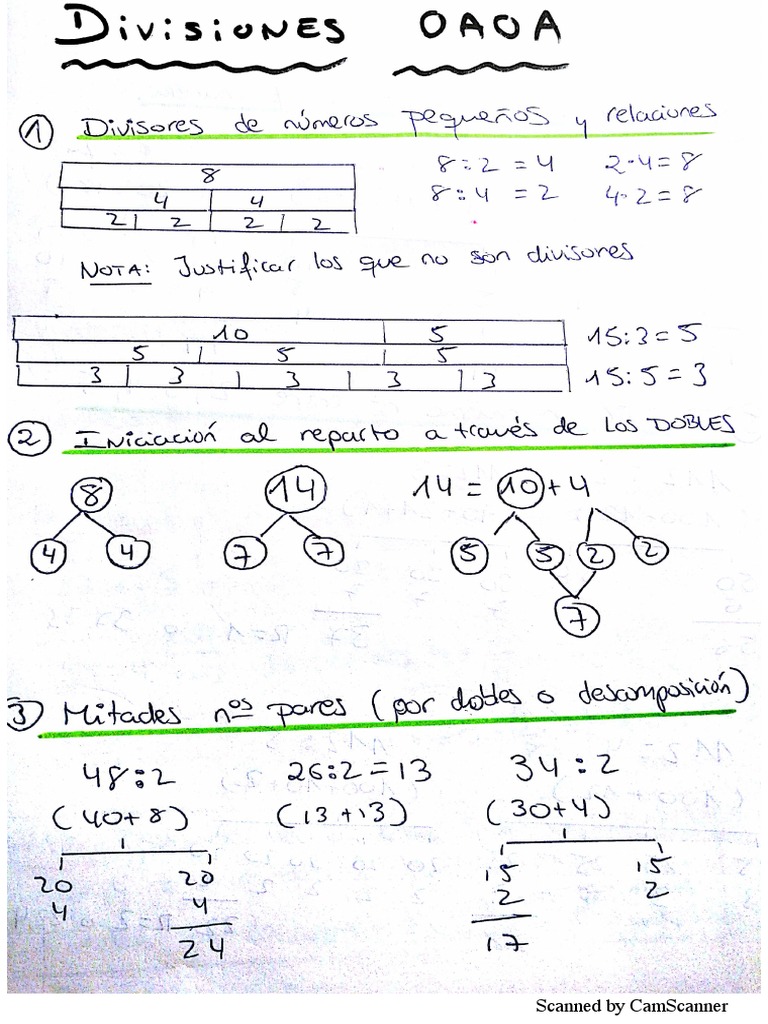 DIVISIONES OAOA
1 Divisores de números pequeños y relaciones
8
4 4
2 2 2 2
8:2 = 4 2·4=8
8:4 = 2 4·2=8
NOTA: Justificar los que no son divisores
10 5
5 5 5
3 3 3 3 3
15:3=5
15:5=3
2 INICIACIÓN al reparto a través de los DOBLES
8 14 14 = 10+4
4 4 7 7 5 5 2 2
7
3 Mitades nos pares (por dobles o descomposición)
48:2 26:2=13 34:2
(40+8) (13+13) (30+4)
20 20 15 15
4 4 2 2
24 17
Scanned by CamScanner